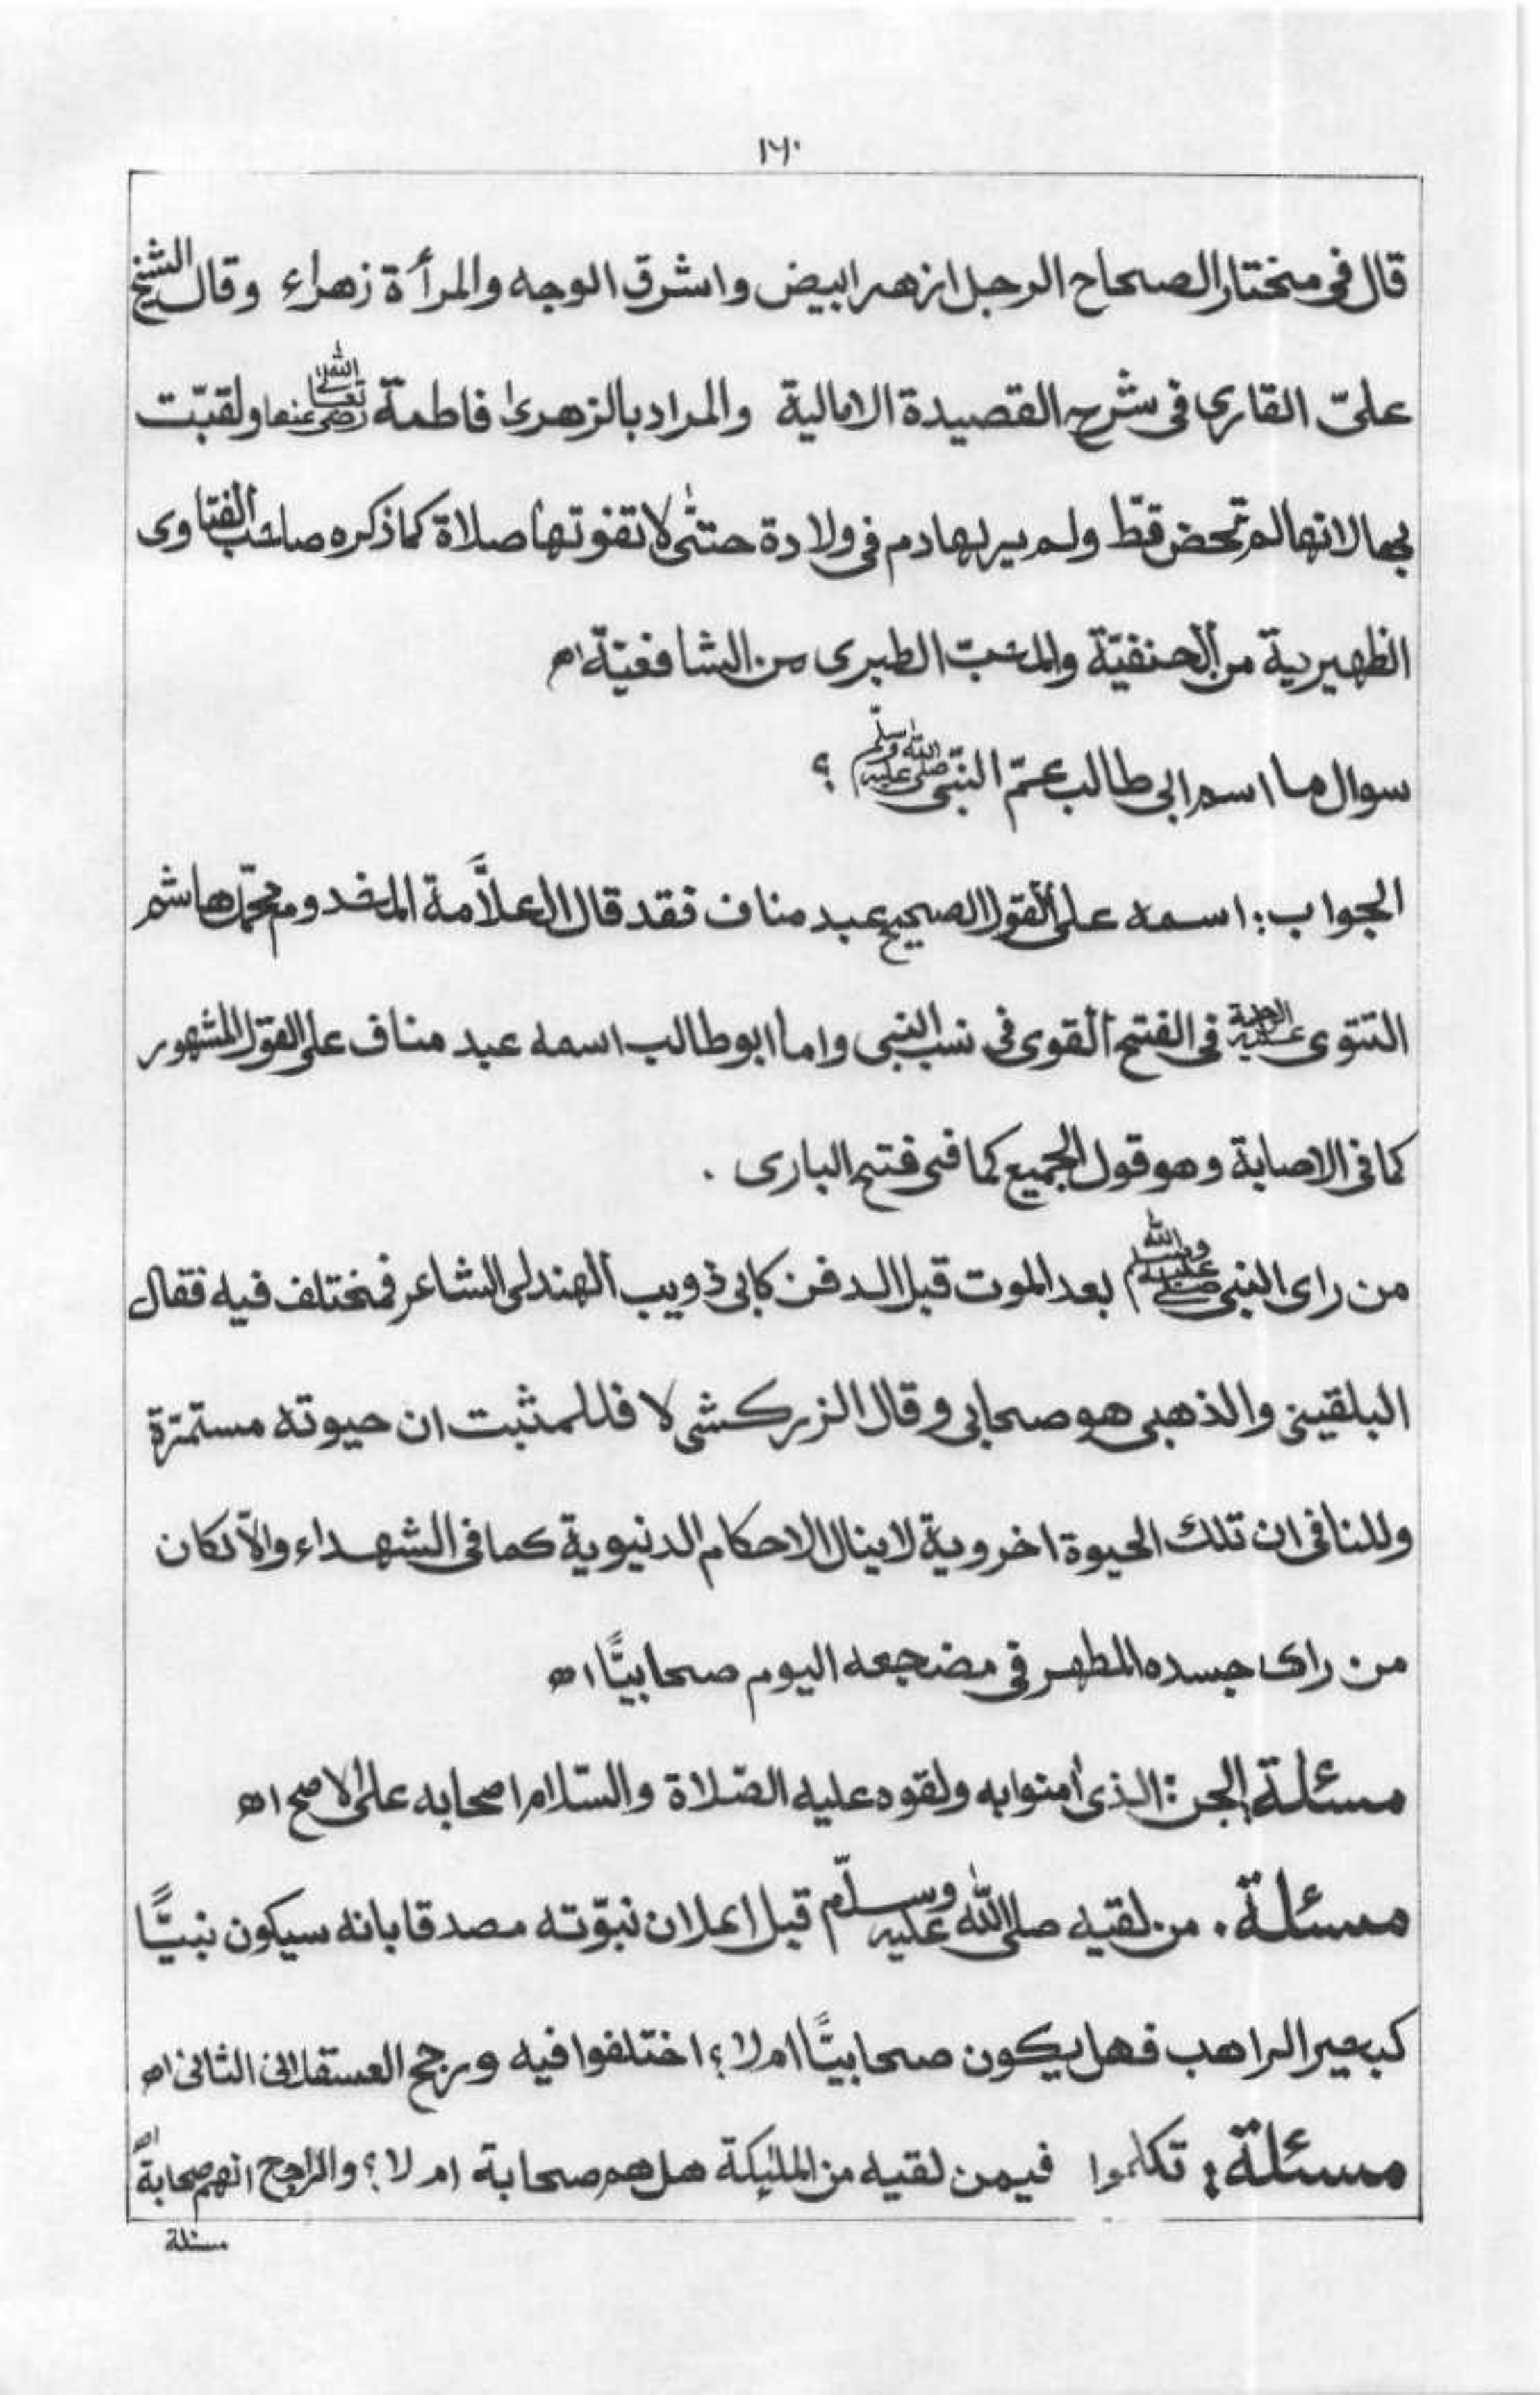 ١٦٠
قال فى مختار الصحاح الرجل ازهر ابيض واشرق الوجه والمرأة زهراء وقال الشيخ
علىّ القارى فى شرح القصيدة الامالية والمراد بالزهرىٰ فاطمة رضى الله تعالىٰ عنها ولقبّت
بها لانها لم تحض قطّ ولم ير لها دم فى ولادة حتىّٰ لا تفوتها صلاة كما ذكره صاحب الفتاوى
الظهيرية من الحنفيّة والمحبّ الطبرى من الشافعيّة اه
سوال ما اسم ابى طالب عمّ النبّى صلى الله عليه وسلّم ؟
الجواب: اسمه على القول الصحيح عبد مناف فقد قال العلاَّمة المخدوم محمّد هاشم
التتوى عليه الرحمة فى الفتح القوى فى نسب النبى واما ابو طالب اسمه عبد مناف على القول المشهور
كما فى الاصابة وهو قول الجميع كما فى فتح البارى .
من راى النبى صلى الله عليه وسلم بعد الموت قبل الدفن كابى ذويب الهندلى الشاعر فمختلف فيه فقال
البلقينى والذهبى هو صحابى وقال الزركشى لا فللمثبت ان حيوته مستمرّة
وللنافى ان تلك الحيوة اخروية لا ينال الاحكام الدنيوية كما فى الشهداء والاّ لكان
من راى جسده المطهر فى مضجعه اليوم صحابيًّا اه
مسئلة الجن: الذى اٰمنوا به ولقوه عليه الصّلاة والسّلام اصحابه على الاصح اه
مسئلة. من لقيه صلى الله عليه وسلّم قبل اعلان نبوّته مصدقا بانه سيكون نبيًّا
كبحير الراهب فهل يكون صحابيًّا ام لا؟ اختلفوا فيه ورجح العسقلانى الثانى اه
مسئلة: تكلموا فيمن لقيه من الملئكة هل هم صحابة ام لا؟ والراجح انهم صحابة اه
مسئلة